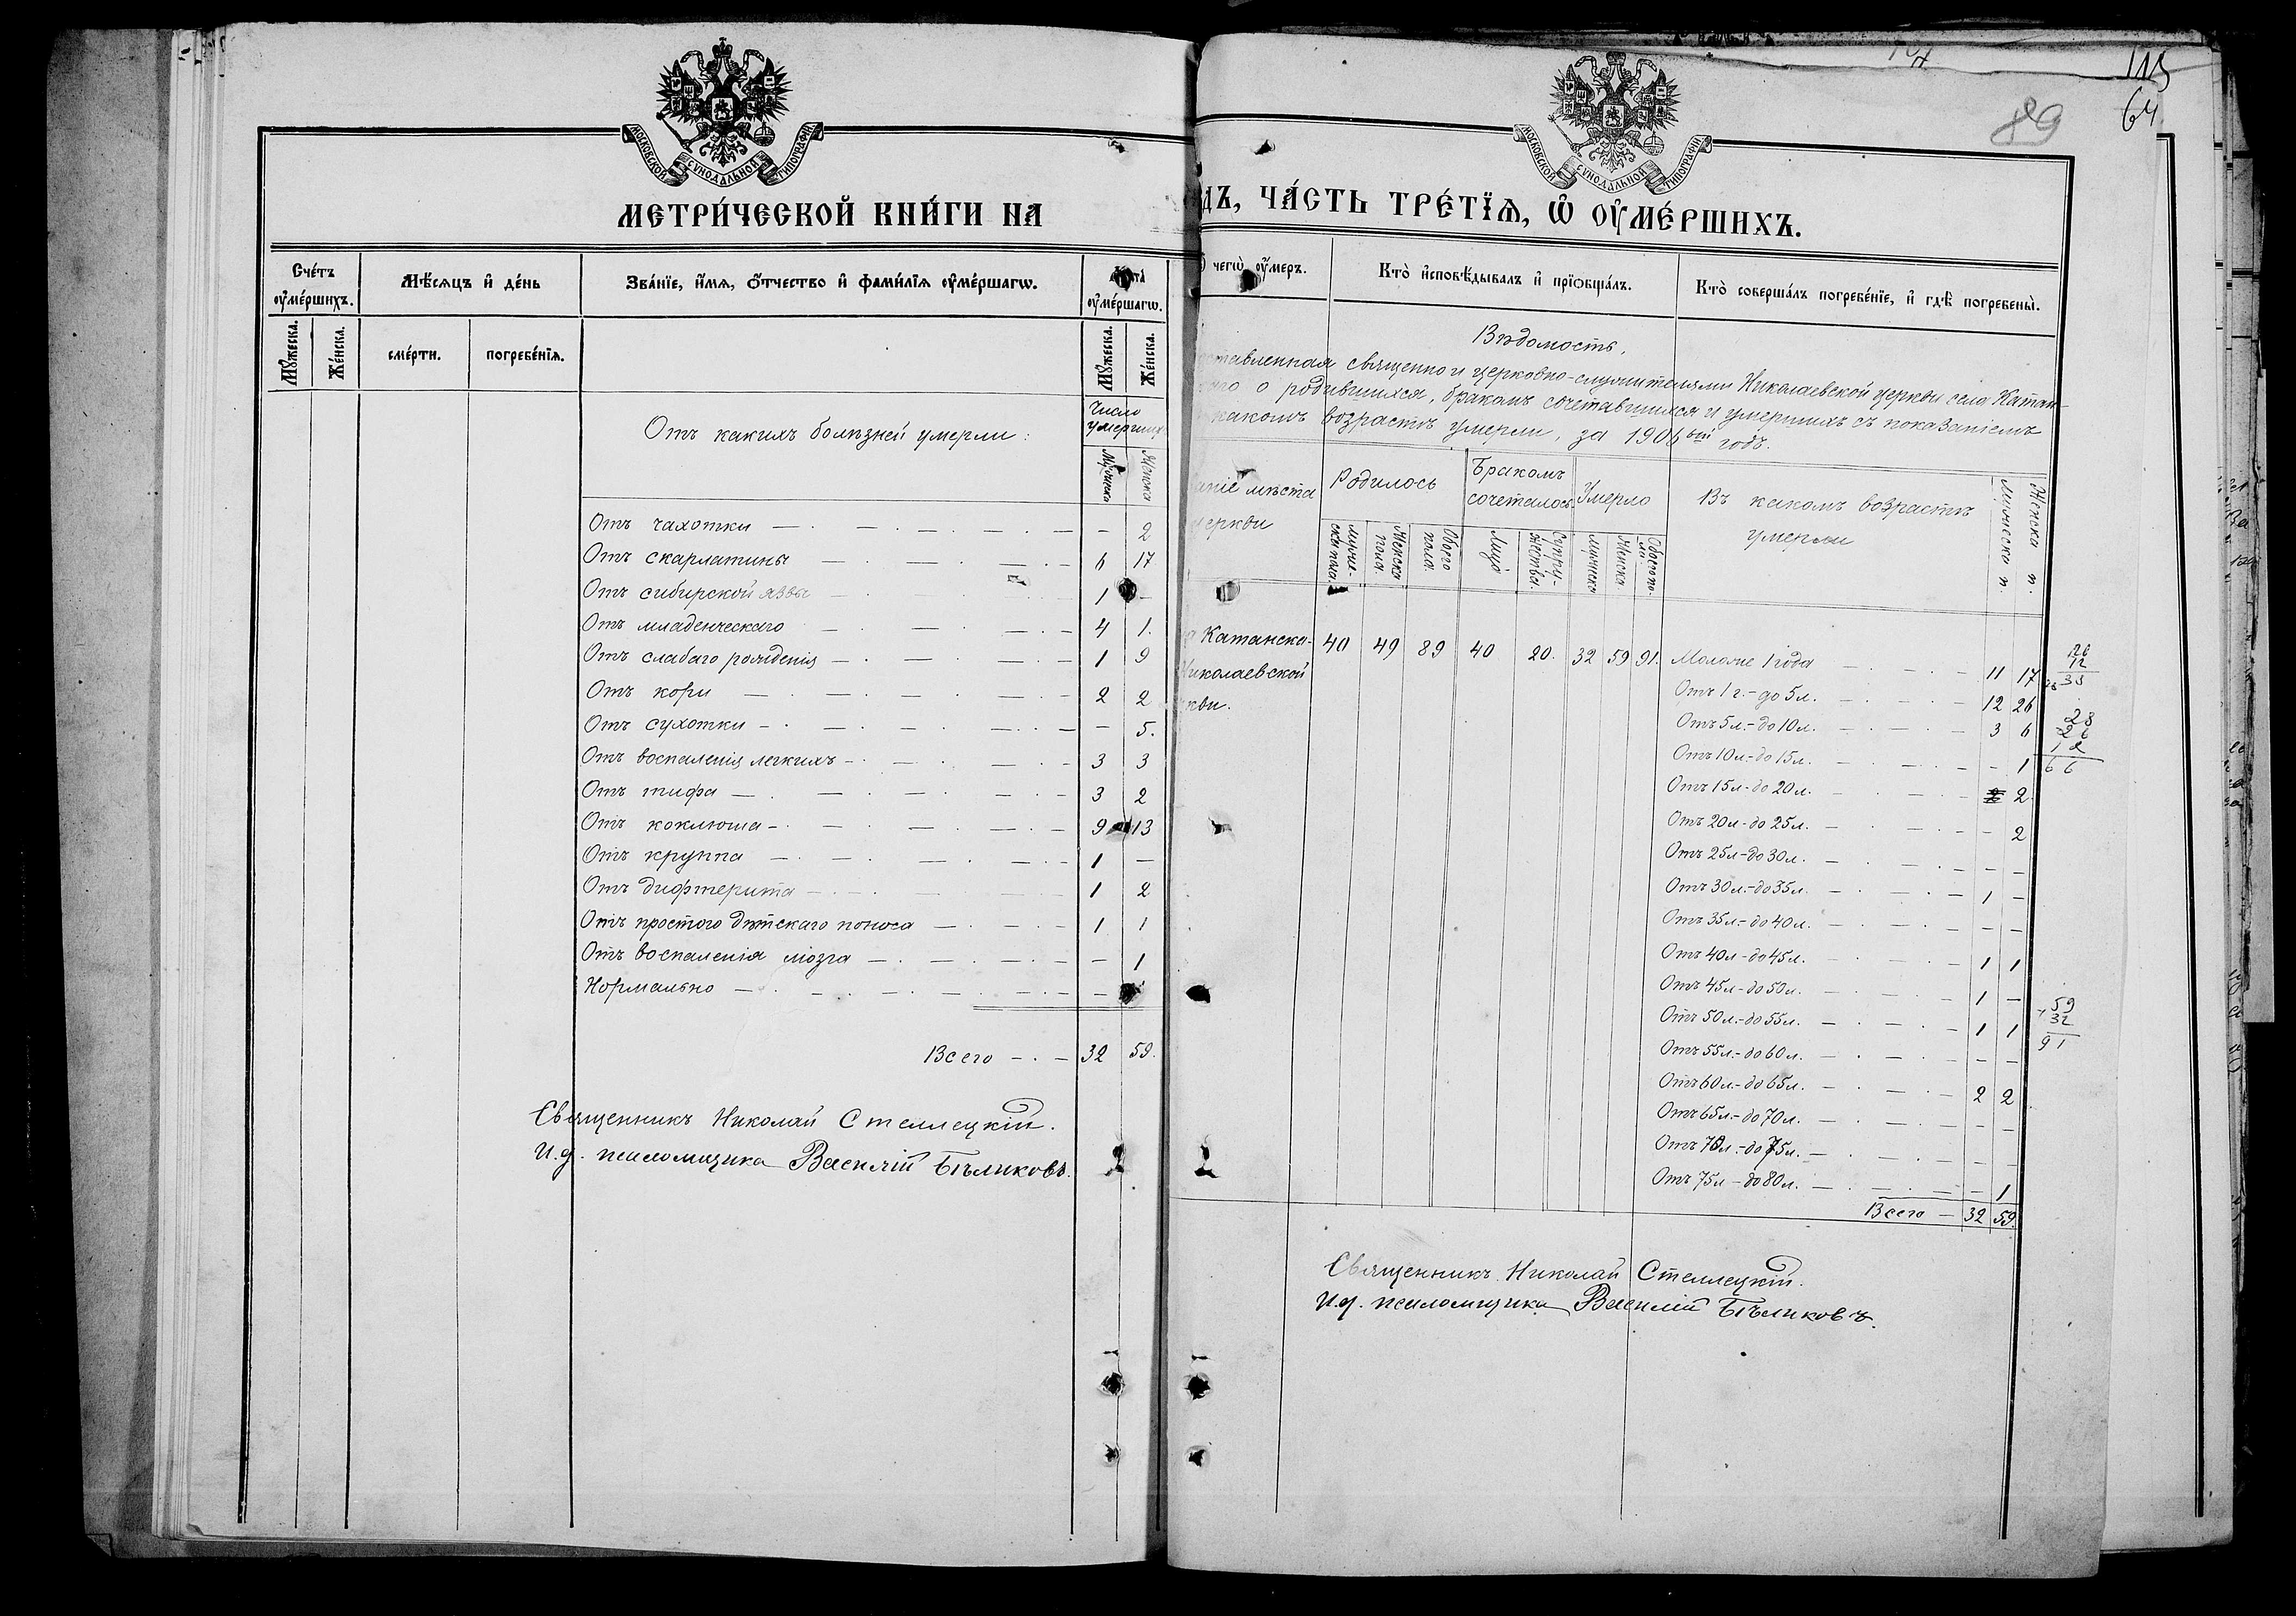 МОСКОВСКОЙ СУНОДАЛЬНОЙ ТИПОГРАФІИ
МЕТРИ́ЧЕСКОЙ КНИ́ГИ НА
Сче́тъ оу҆ме́ршихъ.
Мѣ́сяцъ и҆ де́нь
Зва́нїе, и҆́мѧ, ѻ҆́тчество и҆ фами́лїѧ оу҆ме́ршагѡ.
оу҆ме́ршагѡ.
Мꙋ́жеска.
Же́нска.
сме́рти.
погребе́нїѧ.
Мꙋ́жеска.
Же́нска.
Отъ какихъ болѣзней умерли:
Число умершихъ
Мужеска
Женска
Отъ чахотки — 2
Отъ скарлатины 6 17
Отъ сибирской язвы 1 —
Отъ младенческаго 4 1.
Отъ слабаго рожденія 1 9
Отъ кори 2 2
Отъ сухотки — 5.
Отъ воспаленія легкихъ 3 3
Отъ тифа 3 2
Отъ коклюша 9 13
Отъ круппа 1 —
Отъ дифтерита 1 2
Отъ простого дѣтскаго поноса 1 1
Отъ воспаленія мозга — 1
Нормально —
Всего 32 59.
Священникъ Николай Стеллецкій.
И.д. псаломщика Василій Бѣликовъ.
115
64
89
МОСКОВСКОЙ СУНОДАЛЬНОЙ ТИПОГРАФІИ
дъ, ЧА́СТЬ ТРЕ́ТЇѦ, Ѡ҆ ОУ҆МЕ́РШИХЪ.
чегѡ̀ оу҆́меръ.
Кто̀ и҆сповѣ́дывалъ и҆ прїѡбща́лъ.
Кто̀ соверша́лъ погребе́нїе, и҆ гдѣ̀ погребены̀.
Вѣдомость,
ставленная священно и церковно-служителями Николаевской церкви села Катан-
о родившихся, бракомъ сочетавшихся и умершихъ съ показаніемъ
какомъ возрастѣ умерли, за 1906 год.
аніе мѣста
церкви
Родилось
Бракомъ сочеталось
Умерло
Въ какомъ возрастѣ умерли
Мужеска п.
Женска п.
Муже-ска пола
Женска пола.
Обоего пола
Лицъ
Супру-жества.
Мужеска
Женска
Обоего по.
Катанско-
Николаевской
ркви.
40 49 89 40 20. 32 59 91.
Моложе 1 года 11 17
Отъ 1 г.-до 5 л. 12 26
Отъ 5 л.-до 10 л. 3 6
Отъ 10 л.-до 15 л. — 1
Отъ 15 л-до 20 л. 2.
Отъ 20 л-до 25 л. — 2
Отъ 25 л-до 30 л. — —
Отъ 30 л.-до 35 л. 1 —
Отъ 35 л.-до 40 л. — —
Отъ 40 л-до 45 л. 1 1
Отъ 45 л-до 50 л. 1 —
Отъ 50 л.-до 55 л. 1 1
Отъ 55 л.-до 60 л. — —
Отъ 60 л.-до 65 л. 2 2
Отъ 65 л.-до 70 л. — —
Отъ 70 л.-до 75 л. — —
Отъ 75 л-до 80 л. — 1
Всего — 32 59.
28
26
12
66
59
32
91
Священникъ Николай Стеллецкій.
И.д. псаломщика Василій Бѣликовъ.